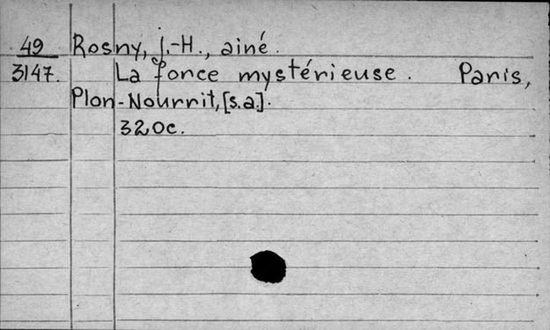 49 Rosny, J.-H., ainé.
3147. La force mystérieuse. Paris,
Plon-Nourrit, [s.a.].
320c.